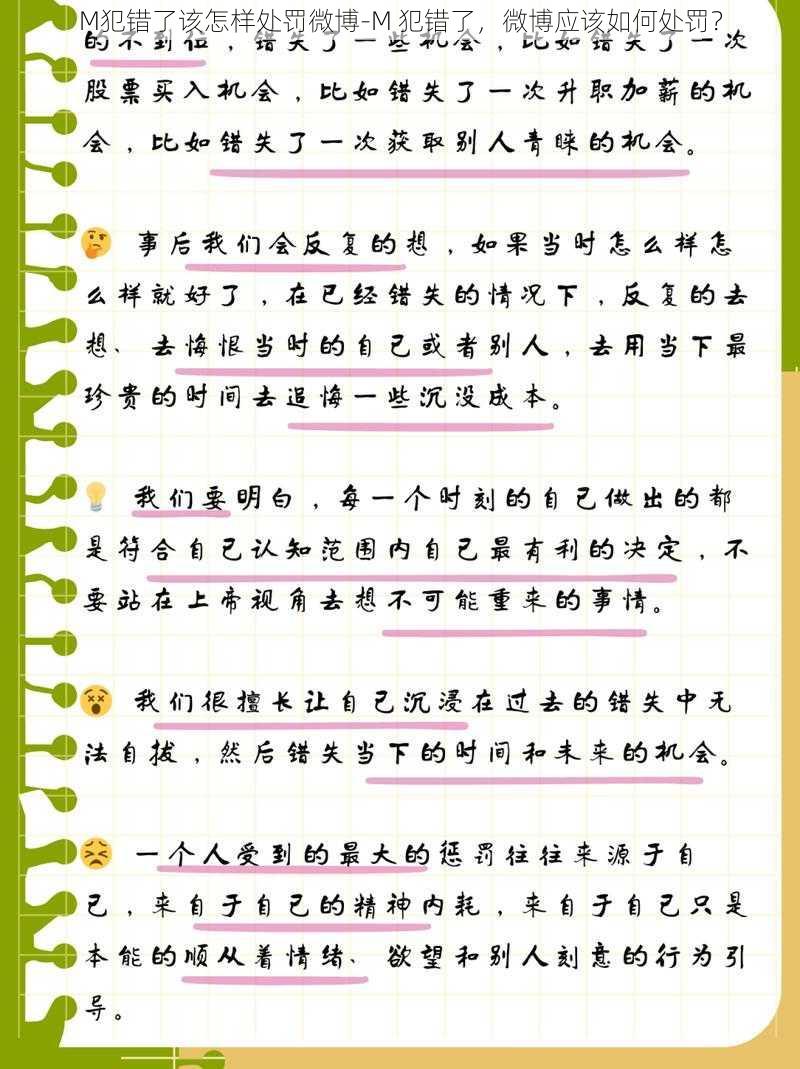 M犯错了该怎样处罚微博-M 犯错了，微博应该如何处罚？
的不到位，错失了一些机会，比如错失了一次
股票买入机会，比如错失了一次升职加薪的机
会，比如错失了一次获取别人青睐的机会。
🤔 事后我们会反复的想，如果当时怎么样怎
么样就好了，在已经错失的情况下，反复的去
想、去悔恨当时的自己或者别人，去用当下最
珍贵的时间去追悔一些沉没成本。
💡 我们要明白，每一个时刻的自己做出的都
是符合自己认知范围内自己最有利的决定，不
要站在上帝视角去想不可能重来的事情。
😵 我们很擅长让自己沉浸在过去的错失中无
法自拔，然后错失当下的时间和未来的机会。
😣 一个人受到的最大的惩罚往往来源于自
己，来自于自己的精神内耗，来自于自己只是
本能的顺从着情绪、欲望和别人刻意的行为引
导。